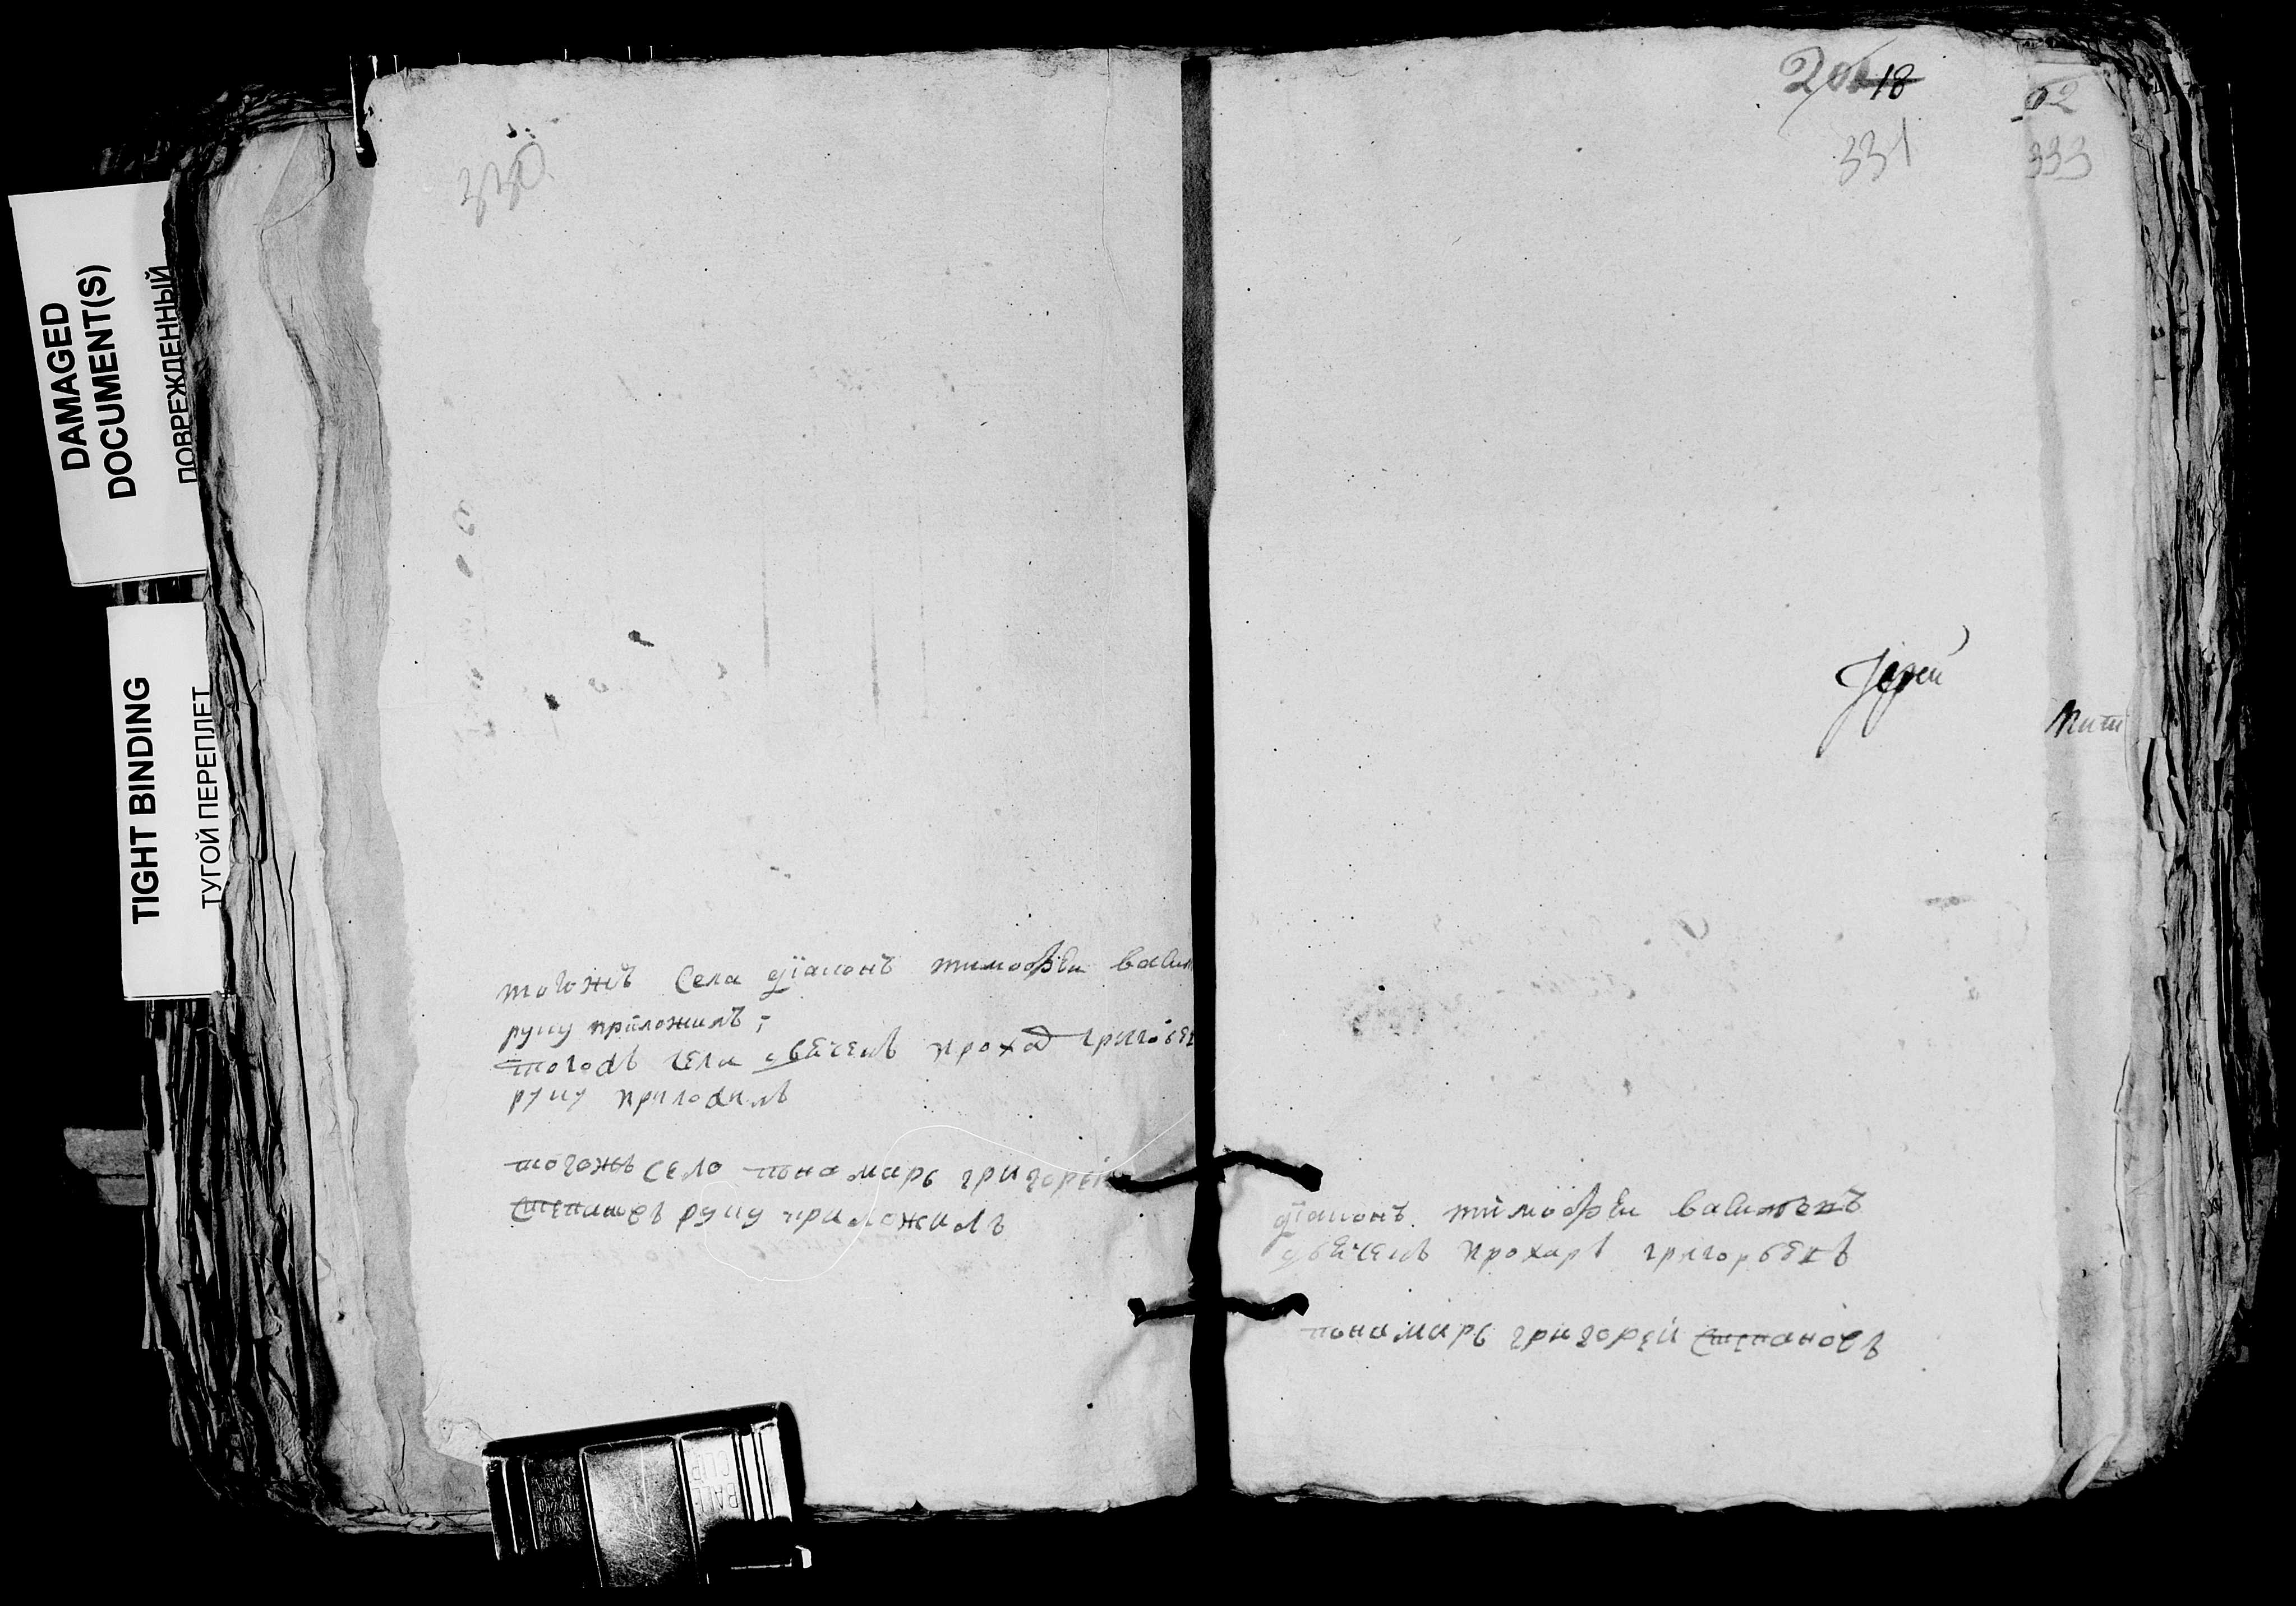 DAMAGED
DOCUMENT(S)
ПОВРЕЖДЕННЫЙ
TIGHT BINDING
ТУГОЙ ПЕРЕПЛЕТ
330
тогожъ Села дїаконъ тимоѳѣи васил
руку приложилъ ;
тогожъ села дьячекъ прохор григорье
руку приложилъ
тогожъ село понамарь григорей
степановъ руку приложилъ
18
331
333
Іерей
дїаконъ тимоѳѣи васильевъ
дьячекъ прохаръ григорьевъ
понамарь григорей степановъ